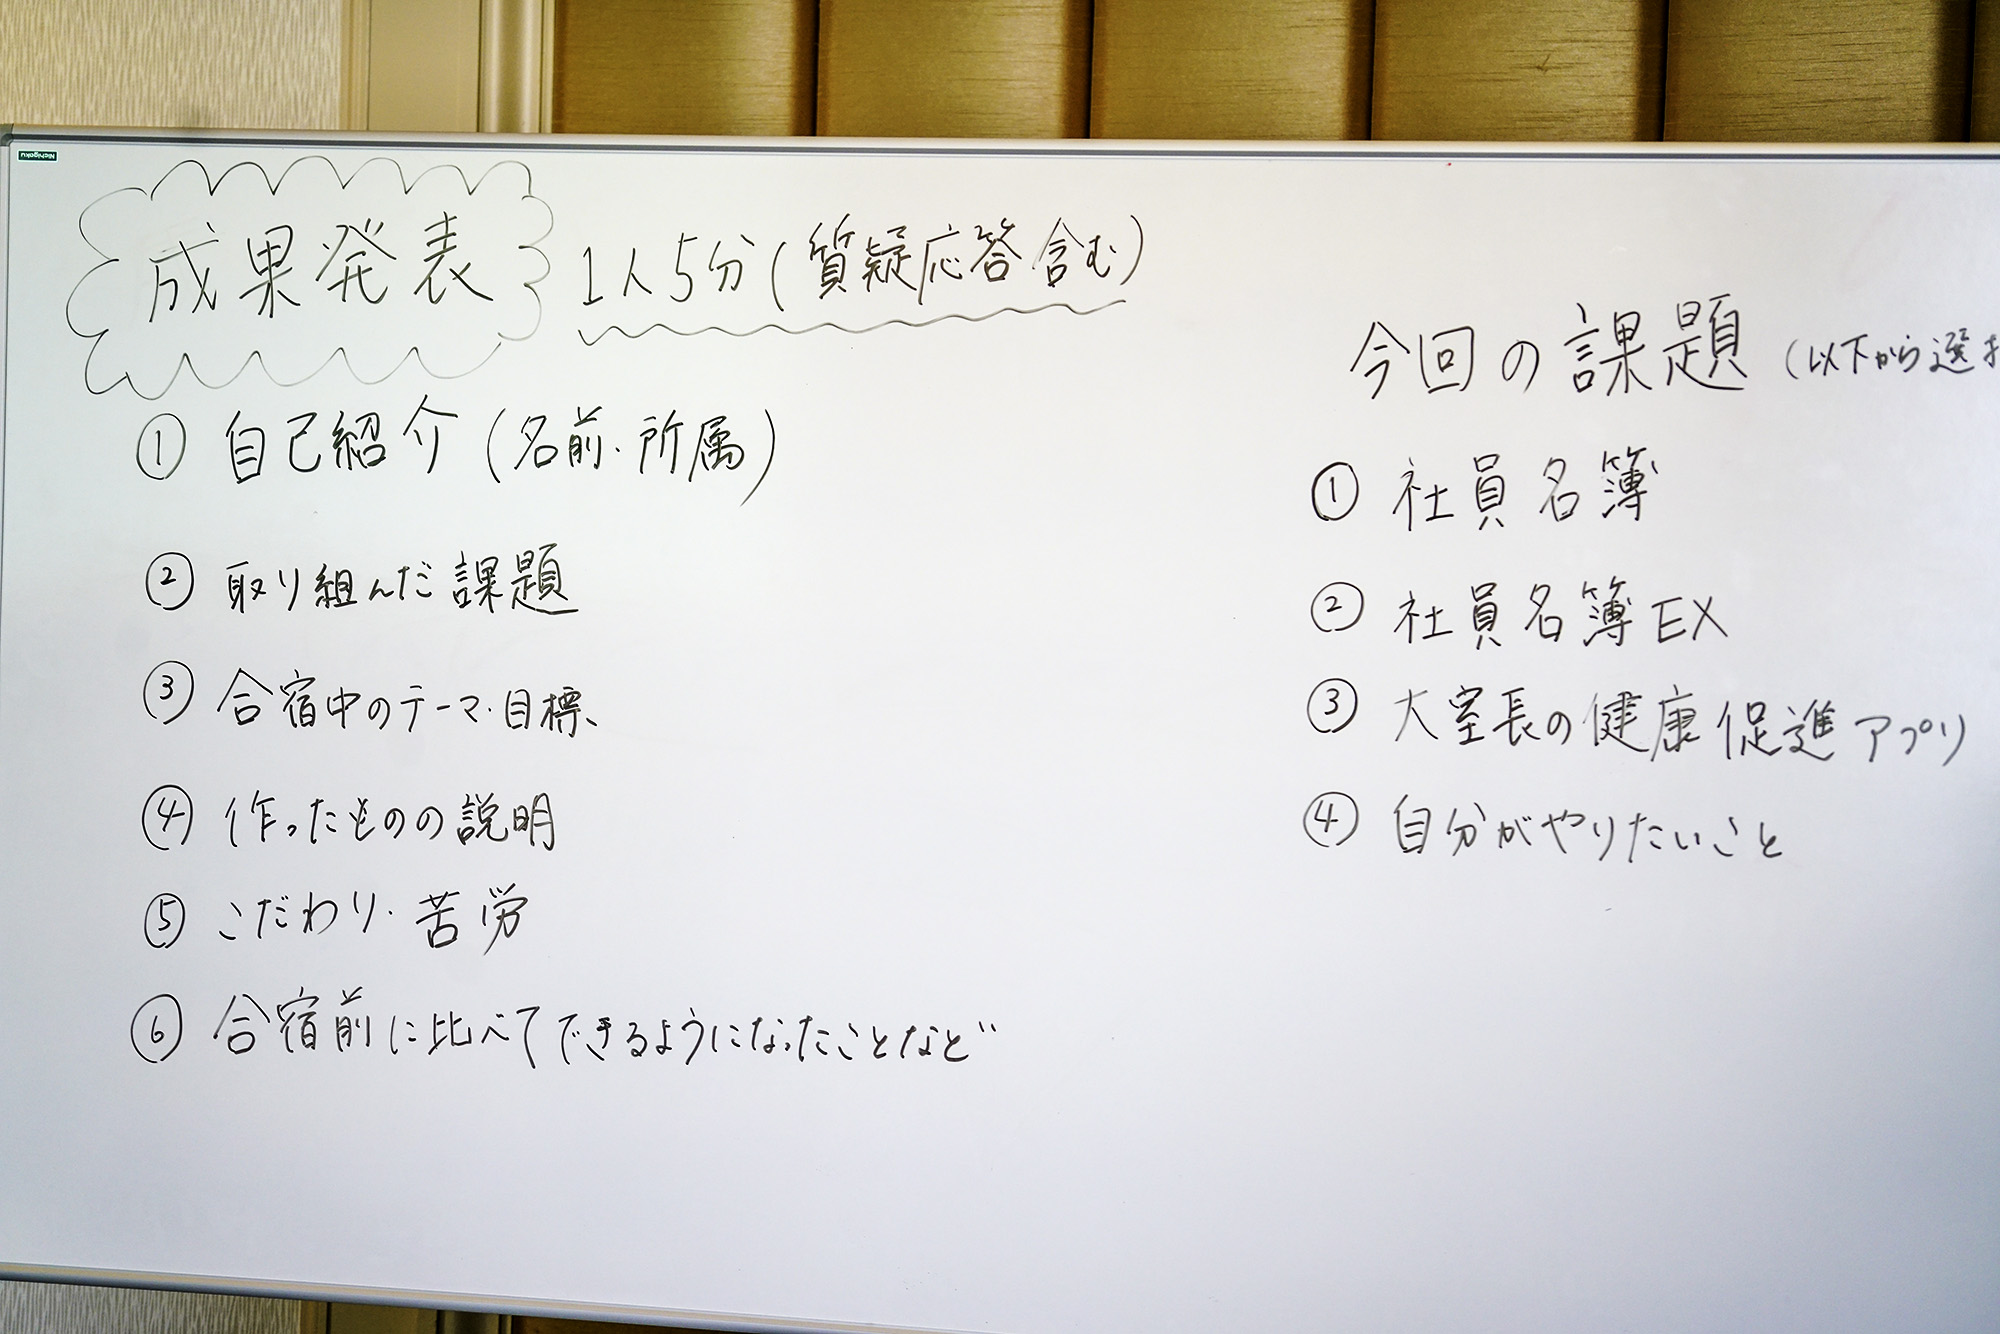 Nichigaku
成果発表 1人5分(質疑応答含む)
① 自己紹介(名前・所属)
② 取り組んだ課題
③ 合宿中のテーマ・目標、
④ 作ったものの説明
⑤ こだわり・苦労
⑥ 合宿前に比べてできるようになったことなど
今回の課題(以下から選
① 社員名簿
② 社員名簿EX
③ 大室長の健康促進アプリ
④ 自分がやりたいこと